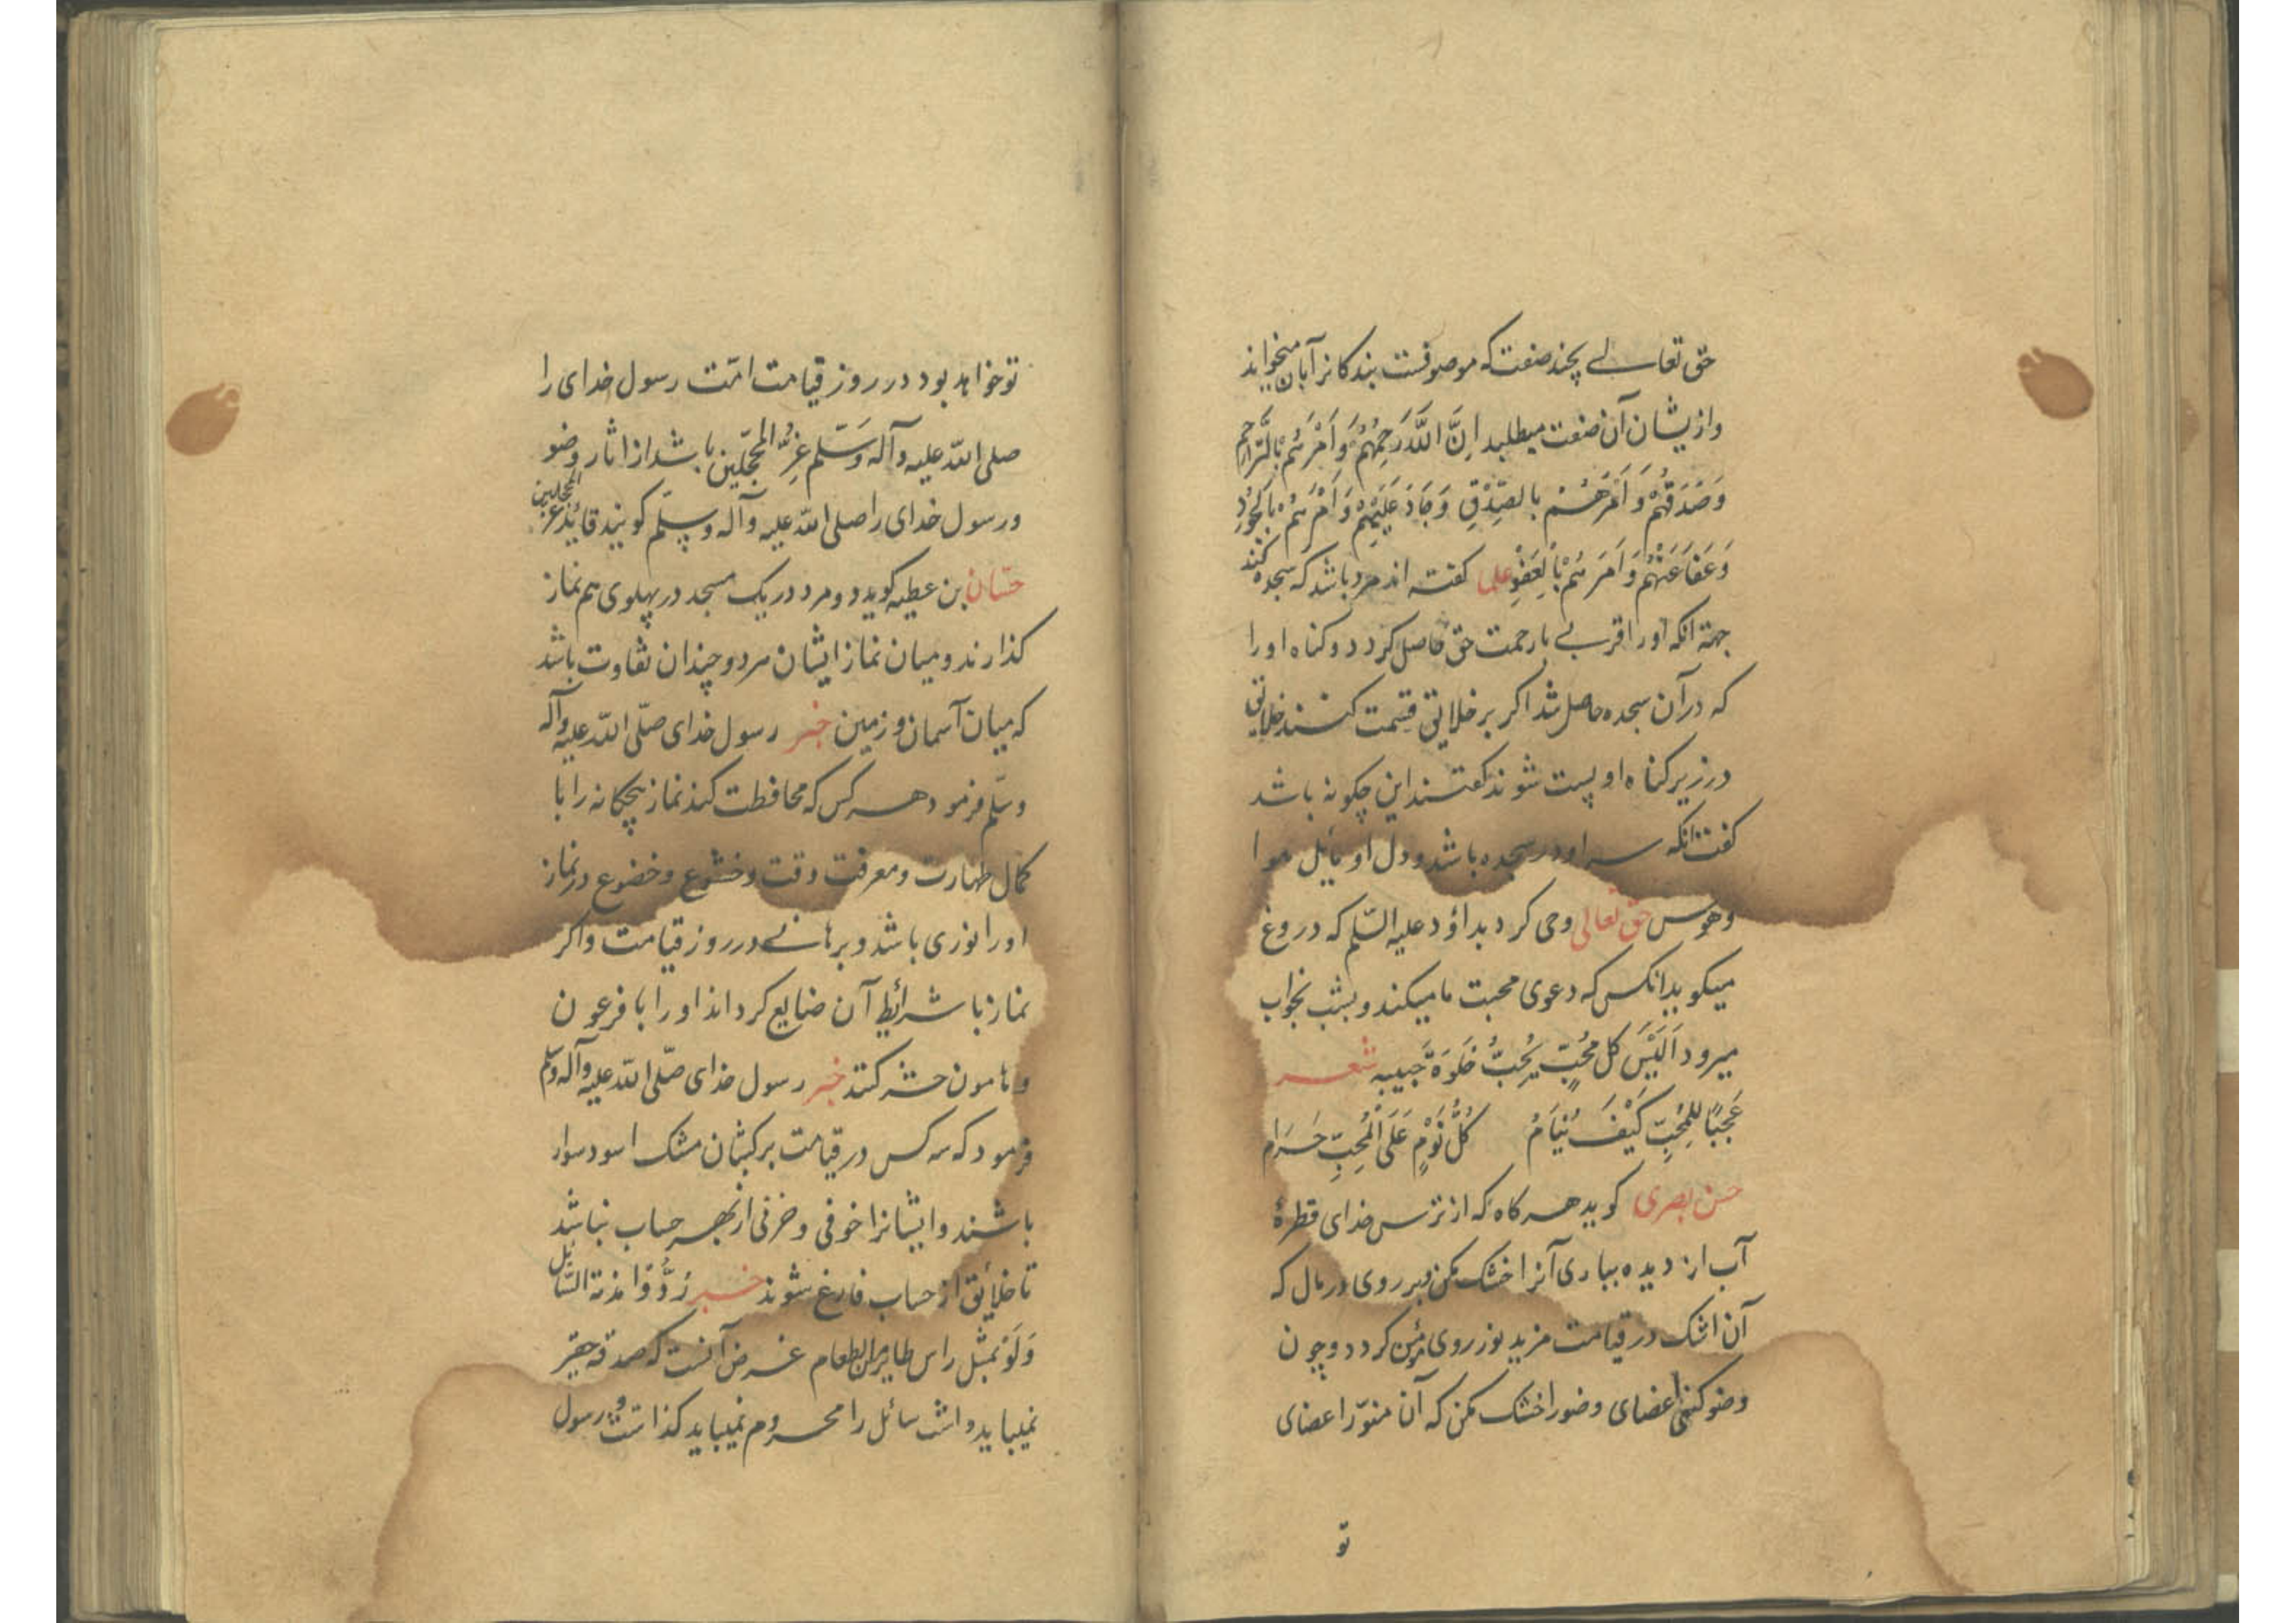 حق تعالی بچند صفت که موصوفست بندکانرا بآن میخواند
وازیشان آن صفت میطلبد اِنَّ اللَّهَ رَحِمَهُمْ وَاَمَرَهُمْ بِالتَّرَاحُمِ
وَصَدَقَهُمْ وَاَمَرَهُمْ بِالصِّدْقِ وَجَادَ عَلَيْهِمْ وَاَمَرَهُمْ بِالْجُودِ
وَعَفَا عَنْهُمْ وَاَمَرَهُمْ بِالْعَفْوِ علی کفته اند مرد باشد که سجده کند
جهة انکه اورا قربی با رحمت حق حاصل کردد و کناه اورا
که در آن سجده حاصل شد اکر بر خلایق قسمت کنند خلایق
در زیر کناه او پست شوند کفتند این چکونه باشد
کفت انکه سر او در سجده باشد و دل او مایل هوا
وهوس حق تعالی وحی کرد بداؤد علیه السّلم که دروغ
میکوید انکس که دعوی محبت ما میکند و بشب بخواب
میرود اَلَيْسَ كل مُحِبٍّ يُحِبُّ خَلوَةَ حَبيبِه شعر
عَجَبًا لِلمُحِبِّ كَيْفَ يَنَامُ كُلُّ نَوْمٍ عَلَى الْمُحِبِّ حَرَام
حسن بصری کوید هر کاه که از ترس خدای قطرهٔ
آب از دیده بباری آنرا خشک مکن و بر روی در مال که
آن اشک در قیامت مزید نور روی مؤمن کردد و چون
وضو کنی اعضای وضورا خشک مکن که آن منوّر اعضای
تو
تو خواهد بود در روز قیامت امّت رسول خدای را
صلی الله علیه وآله وَسَلّم غرّ المُحَجّلین باشد از اثار وضو
ورسول خدای را صلی الله علیه وآله وسلّم کویند قائد غر المحجلین
حسّان بن عطیه کوید دو مرد در یک مسجد در پهلوی هم نماز
کذارند و میان نماز ایشان هر دو چندان تفاوت باشد
که میان آسمان و زمین خبر رسول خدای صلّی الله علیه وآله
وسلّم فرمود هر کس که محافظت کند نماز پنجکانه را با
کمال طهارت و معرفت وقت و خشوع و خضوع در نماز
اورا نوری باشد و برهانی در روز قیامت واکر
نماز با شرائط آن ضایع کرداند اورا با فرعون
و هامون حشر کنند خبر رسول خدای صلّی الله علیه وآله وسلم
فرمود که سه کس در قیامت بر کثبان مشک اسود سوار
باشند وایشانرا خوفی و حزنی از بهر حساب نباشد
تا خلائق از حساب فارغ شوند خبر رُدُّوا مذمة السّائل
وَلَوْ بمثل راس طایر من الطعام غرض آنست که صدقه حقیر
نمیباید داشت و سائل را محروم نمیباید کذاشت رسول